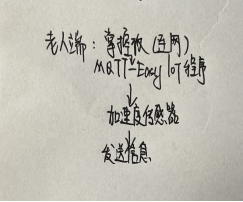 老人端：掌控板(连网)
MQTT-Easy IoT程序
↓
加速度传感器
↓
发送信息